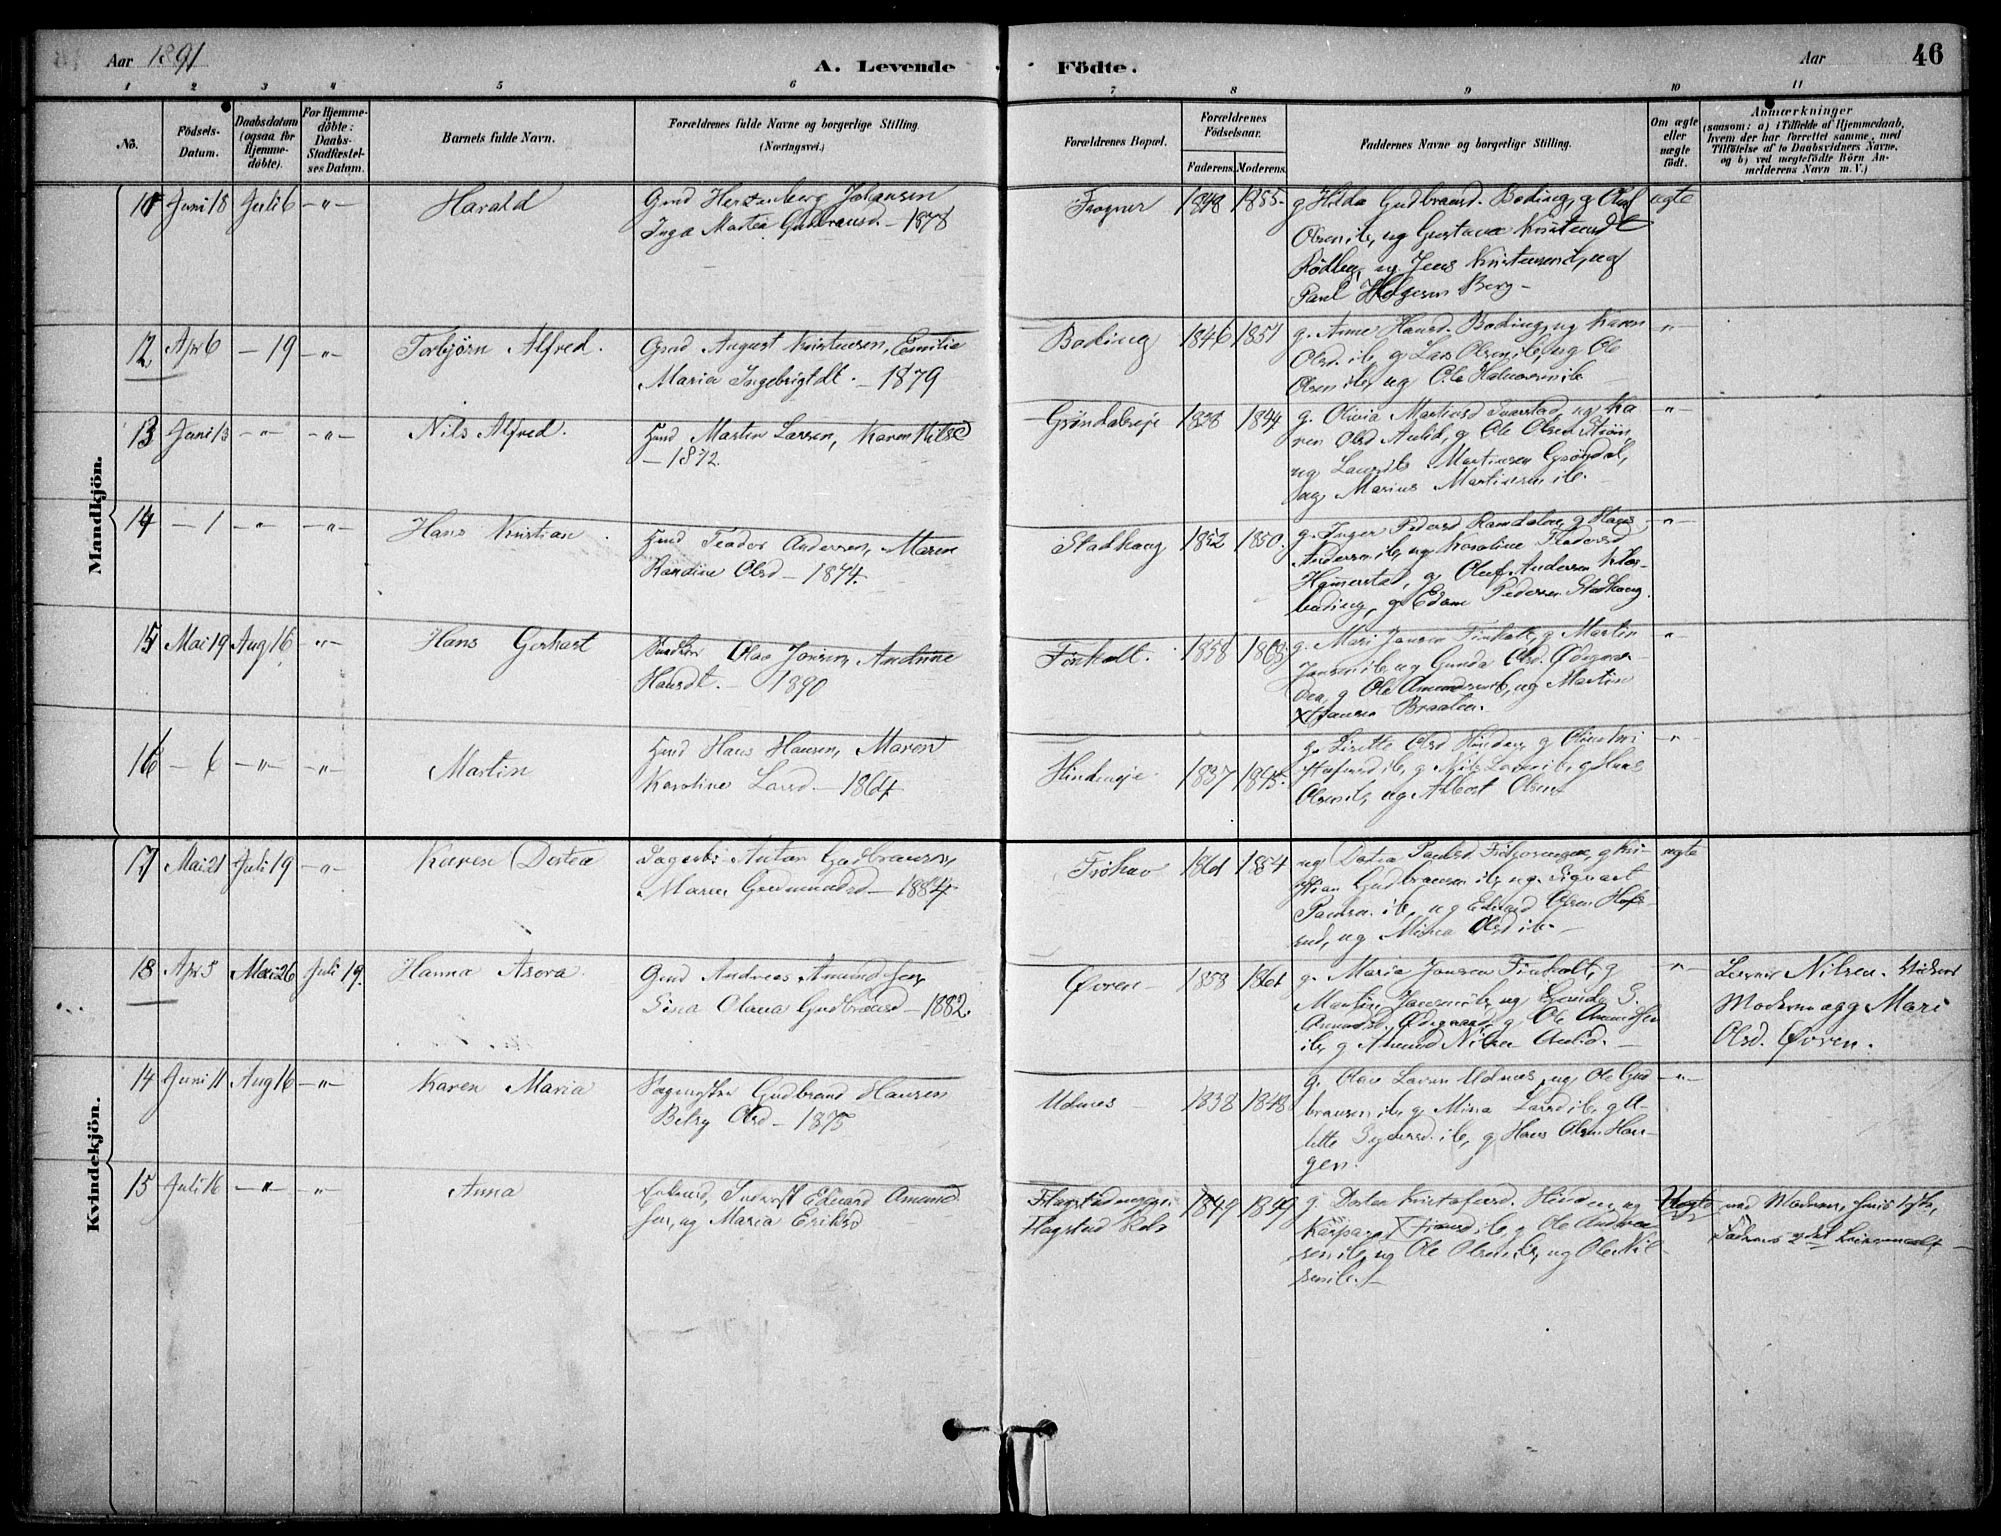 Aar 1891
A. Levende
Födte.
Aar
46
1 2 3 4 5 6 7 8 9 10 11
No.
Födsels-
Datum.
Daabsdatum
(ogsaa for
Hjemme-
döbte).
For Hjemme-
döbte:
Daabs-
Stadfestel-
ses Datum.
Barnets fulde Navn.
Forældrenes fulde Navne og borgerlige Stilling.
(Næringsvei.)
Forældrenes Bopæl.
Forældrenes
Födselsaar.
Faderens.
Moderens.
Faddernes Navne og borgerlige Stilling.
Om ægte
eller
uægte
født.
Anmærkninger
(saasom: a) i Tilfælde af Hjemmedaab,
hvem der har forrettet samme, med
Tilföielse af to Daabsvidners Navne,
og b) ved uægtefödte Börn An-
melderens Navn m. V.)
Mandkjön.
11 Juni 18 Juli 6 -"- Harald
Gmd Johansen
Inga Martea Gudbransd. - 1878
Frogner 1848 1855.
g Hilda Gudbransd. Boding, g Olaf
Olsen ib, ug Gustava Kristensdt
Rødberg, ug Jens Kristensen ib, ug
Paul Helgesen Berg -
ægte
12 Apr 6 - 19 -"- Torbjørn Alfred.
Gmd August Kristensen, Emilie
Maria Ingebrigtdt. - 1879
Boding 1846 1851
g. Anne Hansd. Boding, ug Karen
Olsd. ib, g Lars Olsen ib, ug Ole
Olsen ib, ug Ole Halvorsen ib -
"-
13 Juni 13 -"- -"- Nils Alfred.
Hmd Martin Larsen, Karen Nilsd
- 1872
Grøndalseje 1838 1844
g. Olivia Martinsd ug Ka
ren Olsd Aulid, g Ole Olsen Strøm,
ug Laurits Martinsen Grøndal,
ug Marius Martinsen ib.
"-
14 - 1 -"- -"- Hans Kristian.
Hmd Teador Andersen, Maren
Randine Olsd - 1874.
Stadhaug 1852 1850.
g. Inger Pedersd g Hans
Andersen ib, ug Karoline Teadorsd
Hamerstad, g Oluf Andersen
boding, g Edam Pedersen Stadhaug.
"-
15 Mai 19 Aug 16 "- Hans Gerhart
Olav Jonsen, Andrine
Hansdt. - 1890
Finholt. 1858 1863
g. Mari Jansen Finholt, g Martin
Jansen ib, ug Gunda Olsd. Ødegaar-
den, g Ole Amundsen ib, ug Martin
Hansen Braaten.
"-
16 - 6 -"- -"- Martin
Hmd Hans Hansen, Maren
Karoline Larsd. - 1864
Hindeneje. 1837 1845.
g. Lisette Olsd Hinden, g
ib, g Nils Larsen ib, g Hans
Olsen ib, ug Albert Olsen
"-
Kvindekjön.
17 Mai 21 Juli 19 -"- Karen Dortea
Anton Gudbransen,
Maren Gudmundsd - 1884.
Frøhov 1861 1854
ug Dortea Paulsd g Kri
stian Gudbransen ib, ug Sigvart
Paulsen ib, ug Eduard Olsen Hof-
rud, ug Mina Olsd ib. -
ægte
18 Apr 5 Mai 26 Juli 19. Hanna Asora.
Gmd Andreas Amundsen,
Sina Olava Gudbransd - 1882.
Øvren - 1858 1861
g. Maria Jansen Finholt, g
Martin Jansen ib, ug Gunda S.
Amundsd. Ødegaard, g Ole Amundsen
ib, g Amund Nilsen Aulid. -
"-
Lærer Nilsen.
Moderen og Mari
Olsd. Øvren.
14 Juni 11 Aug 16 -"- Karen Maria
Gudbrand Hansen
Betsy Olsd - 1875
Udnes - 1838 1848
g. Olav Larsen Udnes, ug Ole Gud
bransen ib, g Mina Larsd ib, g A-
lette ib, g Hans Olsen Hau-
gen.
"-
15 Juli 16 -"- "- Anna
Eduard Amund
sen, ug Maria Eriksd
Flagstad
Flagstad 1849 1849
g Dortea Kristofersd. Hinden, ug
Kaspara ib, g Ole Andrea
sen ib, ug Ole Olsen ib, ug Ole Nil-
sen ib. -
Uægte
Moderen,
Faderens 2det -